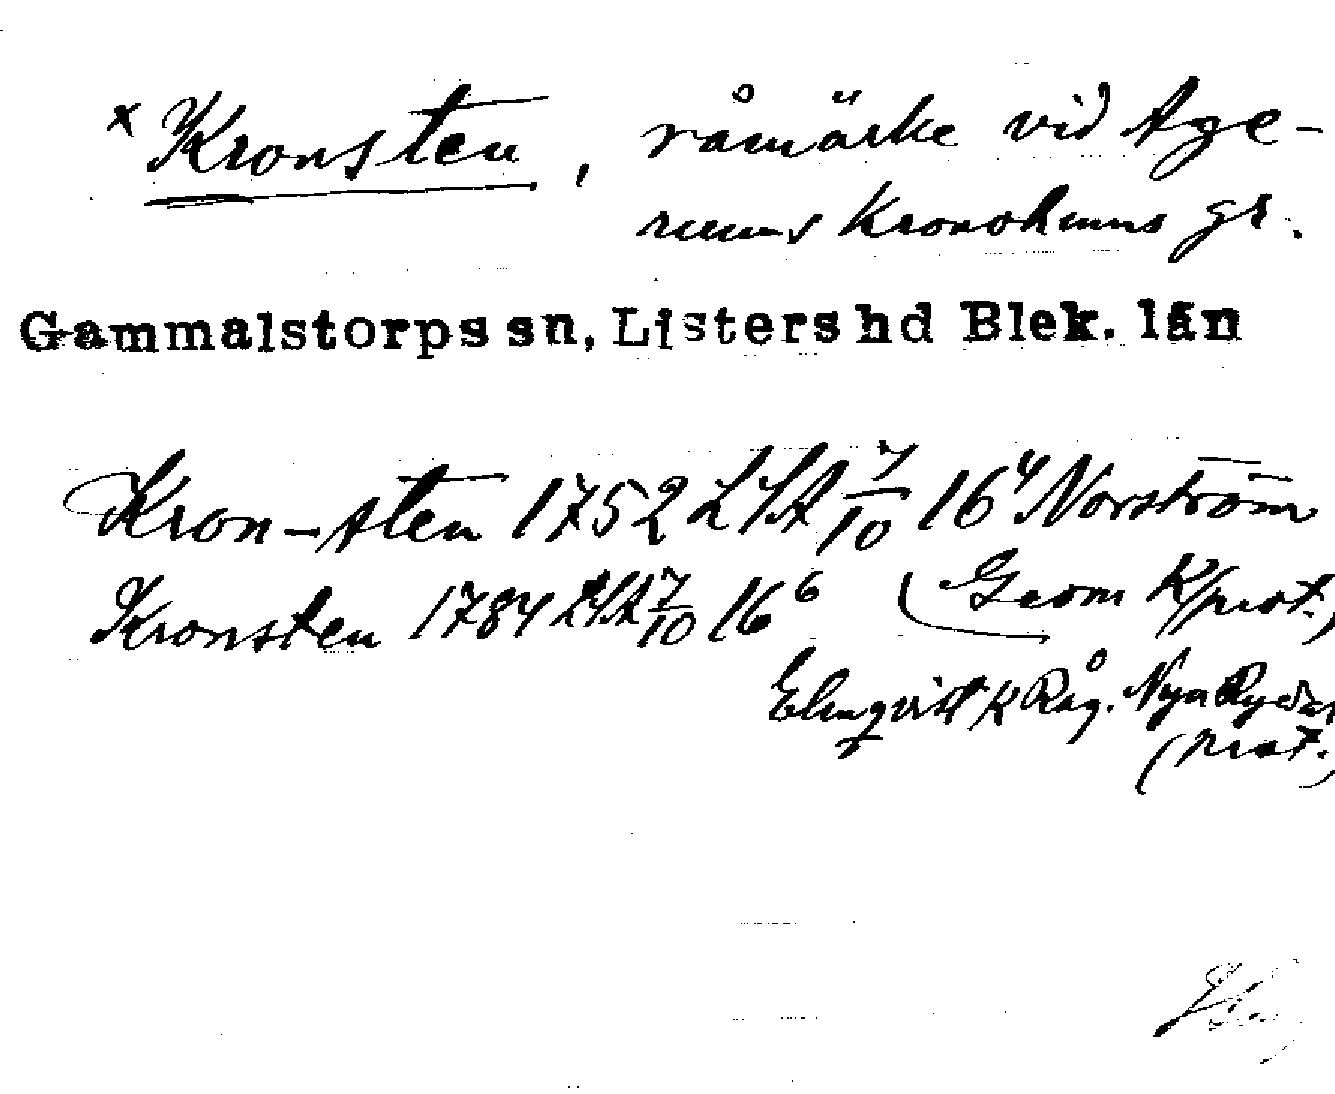 x Kronsten, råmärke vid Age-
rums Kronohmns gr.
Gammalstorps sn, Listers hd Blek. län
Kron-sten 1752 LSA 7/10 16⁴ Norström
Kronsten 1784 LSA 7/10 16⁶ (Geom K/prot.)
Elmqvist K Råg. Nya Rydas
(prot.)